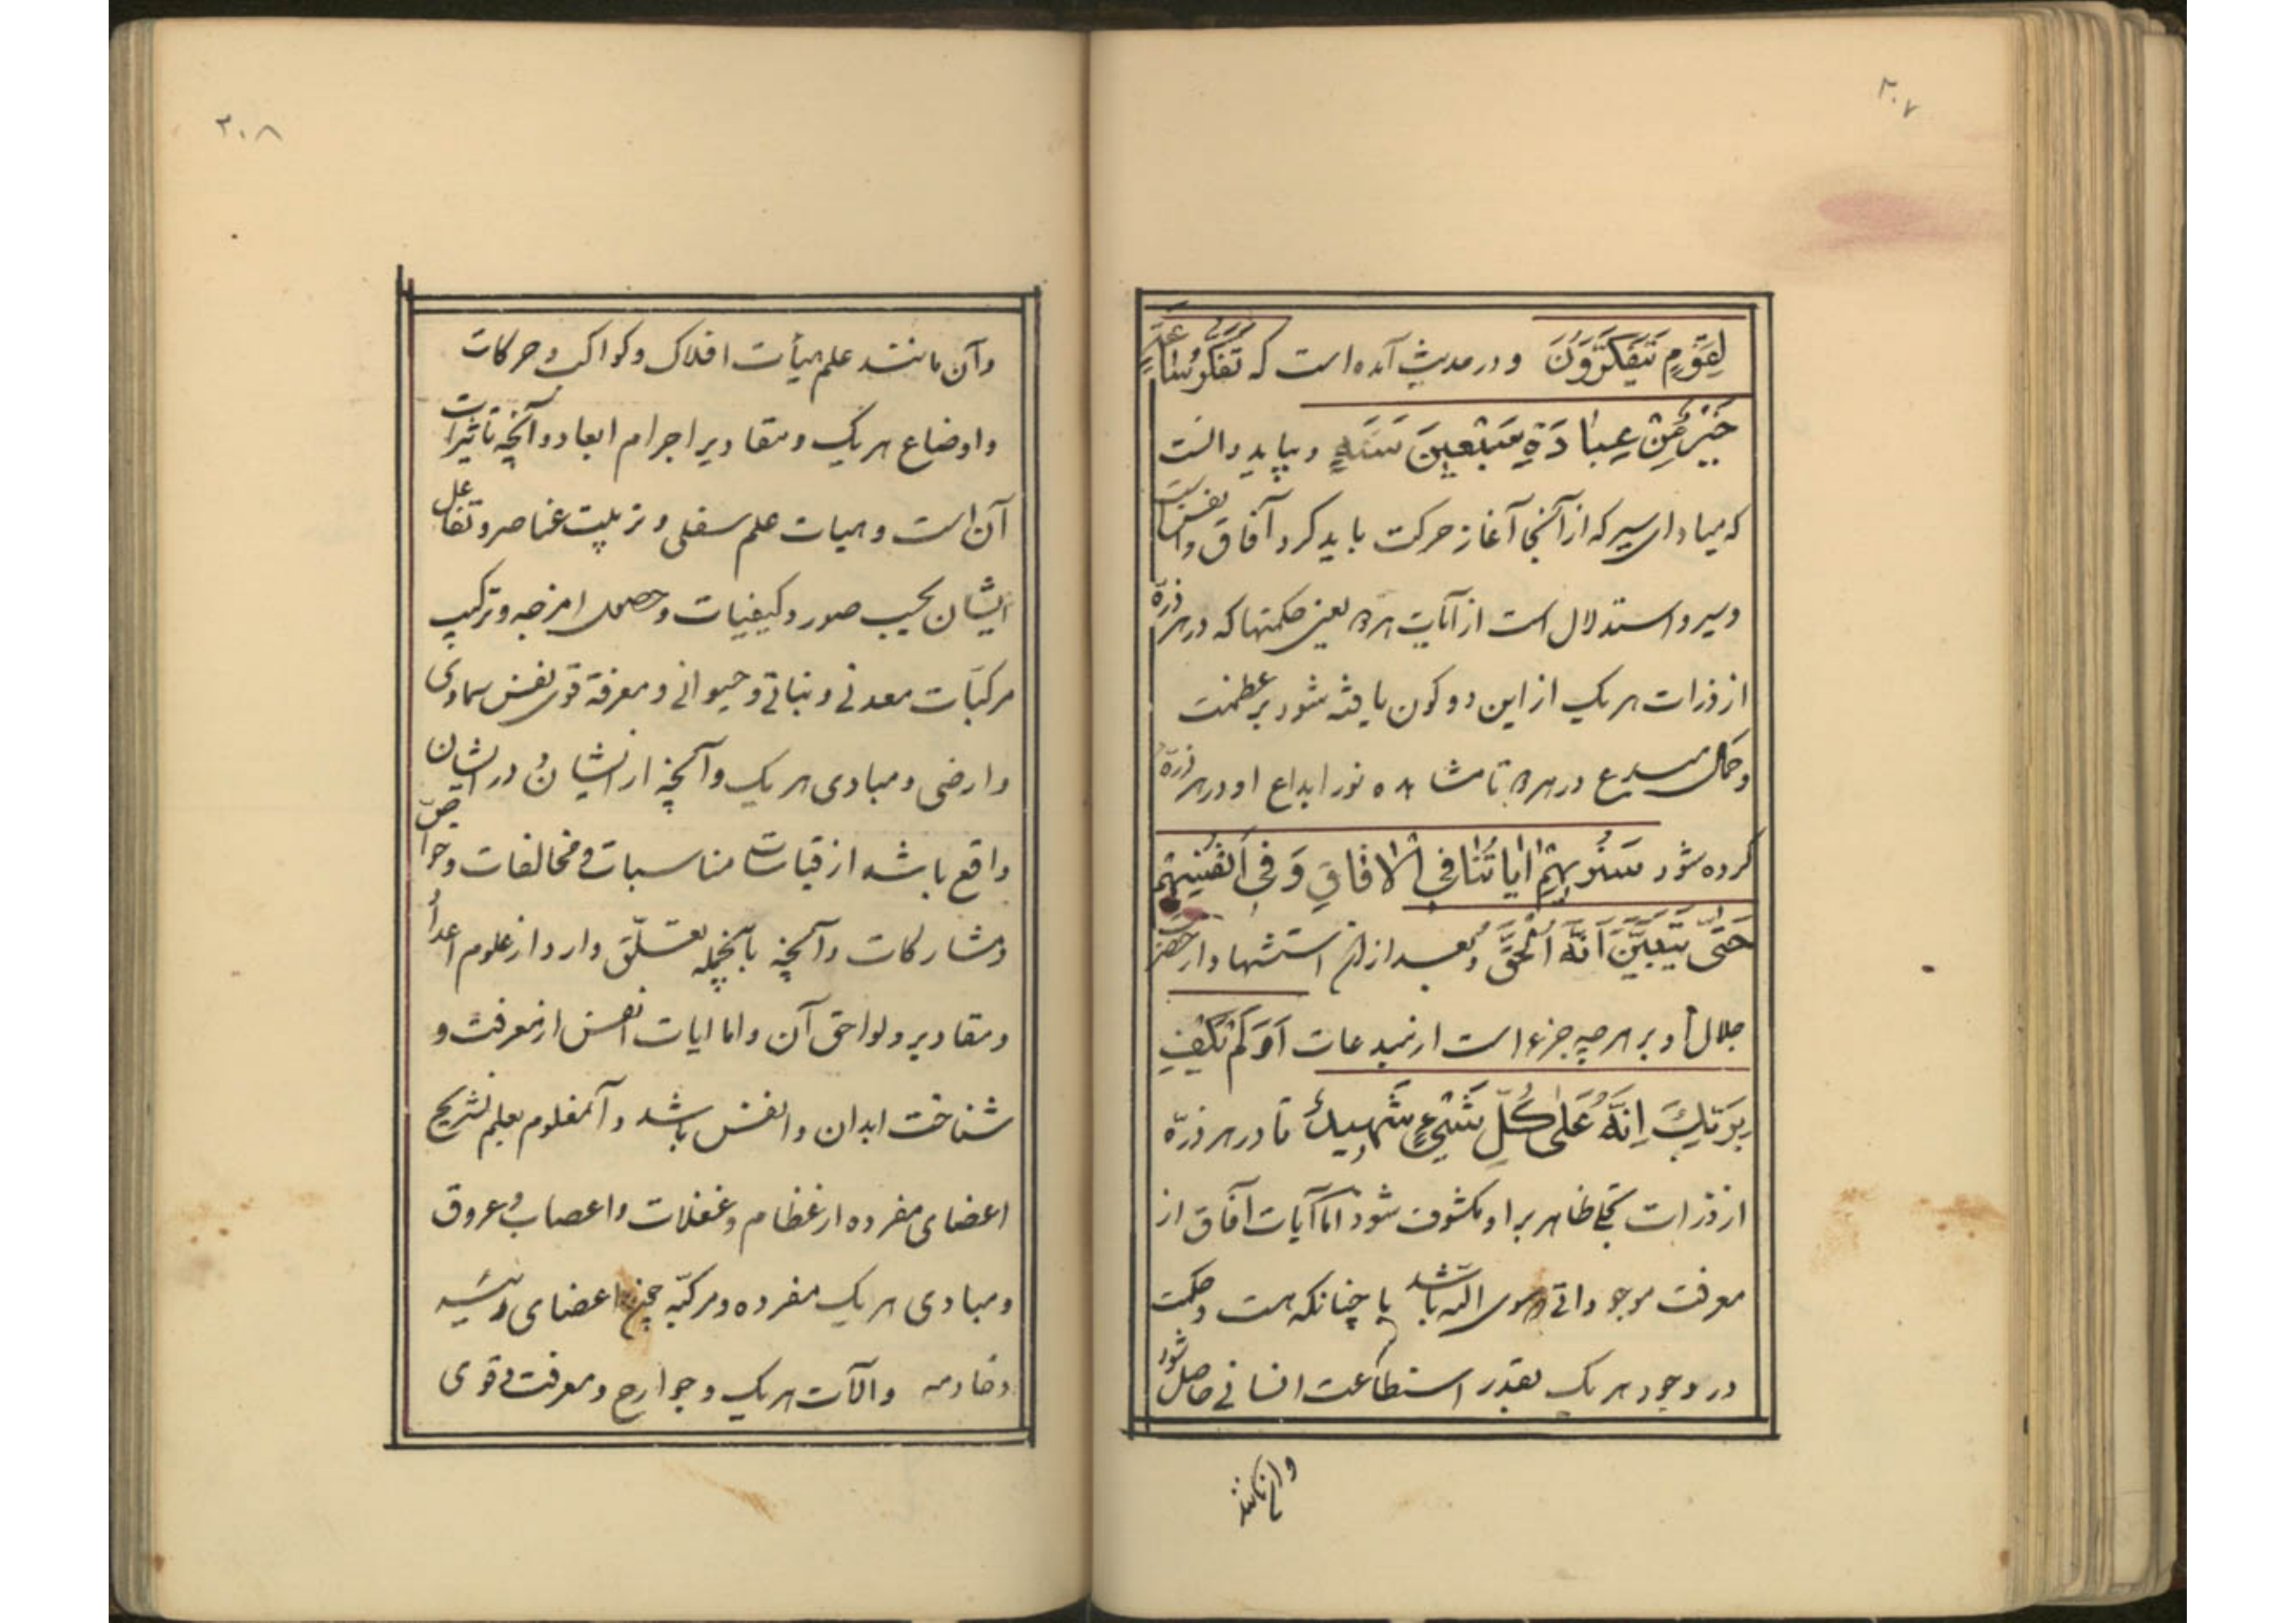 ۲۰۷
لِقَوْمٍ يَتَفَكَّرُونَ و در حدیث آمده است که تَفَكُّرُ سَاعَةٍ
خَيْرٌ مِنْ عِبَادَةِ سَبْعِينَ سَنَةٍ و بباید دانست
که مبادای سیر که از آنجا آغاز حرکت باید کرد آفاق و انفس است
و سیر و استدلال است از آیات هر دو یعنی حکمتها که در هر ذرّه
از ذرات هر یک از این دو کون یافته شود بر عظمت
و کمال مبدع هر دو تا مشاهده نور ابداع او در هر ذرّه
کرده شود سَنُرِيهِمْ اٰيَاتُنَا فِي الْاٰفَاقِ وَفِي اَنْفُسِهِمْ
حَتّٰى يَتَبَيَّنَ اَنَّهُ الْحَقُّ و بعد از آن استشهاد از حضرت
جلال او بر هر چه جزء است از مبدعات اَوَلَمْ يَكْفِ
بِرَبِّكَ اِنَّهُ عَلٰى كُلِّ شَيْءٍ شَهِيدٌ تا در هر ذرّه
از ذرات تجلی ظاهر بر او مکشوف شود امّا آیات آفاق از
معرفت موجوداتی سوی اللّه باشد با چنانکه هست و حکمت
در وجود هر یک بقدر استطاعت انسانی حاصل شود
وان مانند
۲۰۸
و آن مانند علم هیأت افلاک و کواکب و حرکات
و اوضاع هر یک و مقادیر اجرام ابعاد و آنچه تاثیرات
آن است و هیات علم سفلی و ترتیب عناصر و تفاعل
ایشان بحسب صور و کیفیات و حصول امزجه و ترکیب
مرکبّات معدنی و نباتی و حیوانی و معرفة قوی نفس سماوی
و ارضی و مبادی هر یک و آنچه از ایشان و در ایشان
واقع باشد از مناسبات و مخالفات و خواصّ
و مشارکات و آنچه باینجمله تعلّق دارد از علوم اعداد
و مقادیر و لواحق آن و اما ایات انفس از معرفت و
شناخت ابدان و انفس باشد و آن معلوم بعلم تشریح
اعضای مفرده از عظام و عضلات و اعصاب و عروق
و مبادی هر یک مفرده و مرکبّه چون اعضای رئیسه
و خادمه و الآت هر یک و جوارح و معرفت قوی